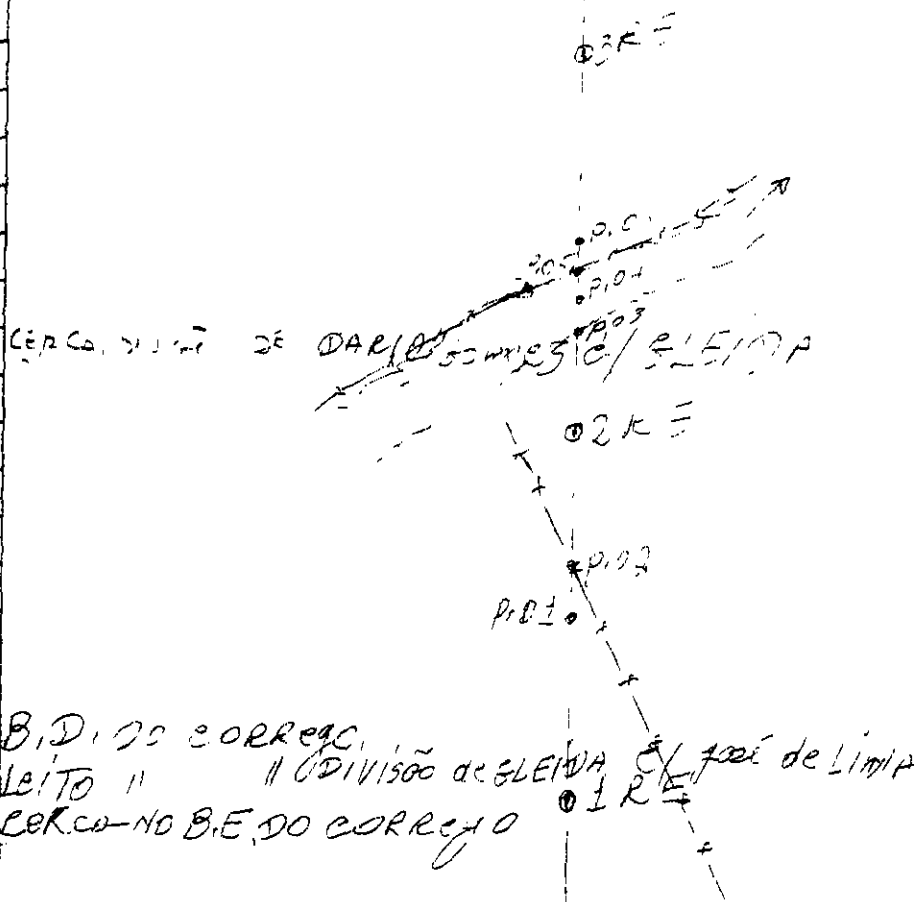 3RE
P.0
P.05
P.04
P.03
CERCA DE DARIO GOMES C/ ELEIDA
2RE
P.02
P.01
B.D. DO CORREGO
LEITO " " DIVISÃO de ELEIDA C/ José de LimA
1RE
CERCA NO B.E. DO CORREGO